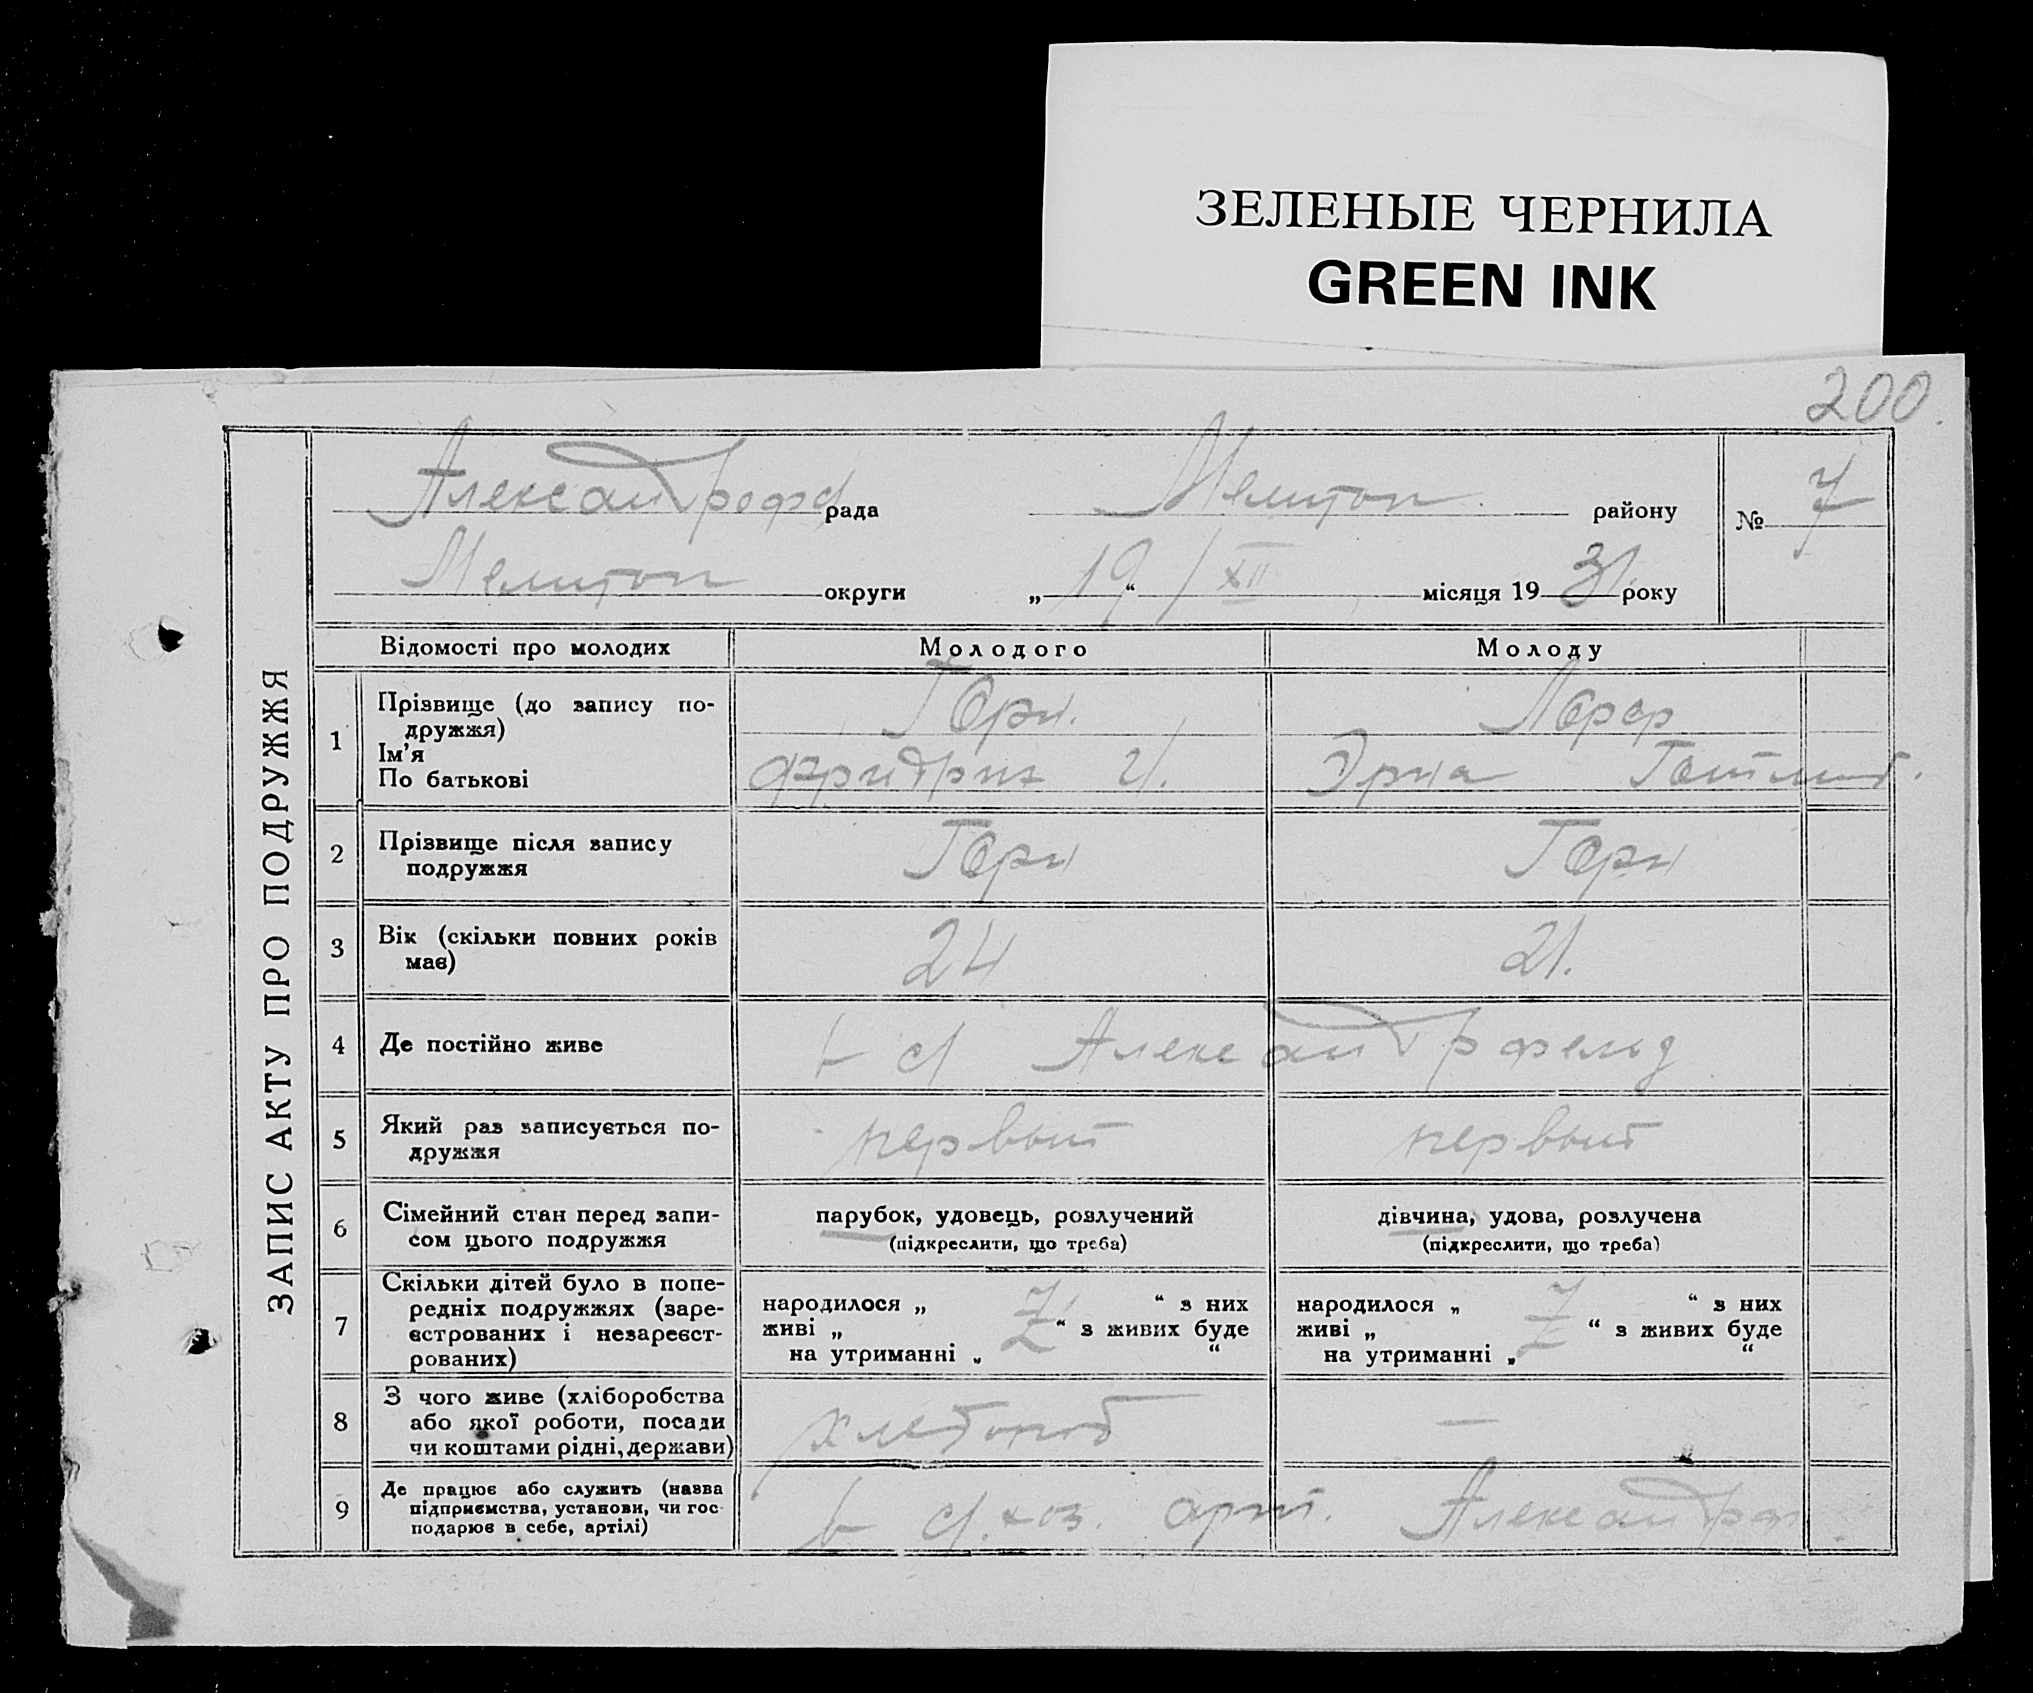 ЗЕЛЕНЫЕ ЧЕРНИЛА
GREEN INK
200
ЗАПИС АКТУ ПРО ПОДРУЖЖЯ
рада Мелитоп. району № 7
Мелитоп округи „19“ / XII місяця 1931 року
Відомості про молодих Молодого Молоду
1 Прізвище (до запису по-
дружжя)
Ім’я
По батькові
Горн.
Фридрих И. Эрна
2 Прізвище після запису
подружжя
Горн Горн
3 Вік (скільки повних років
має)
24 21.
4 Де постійно живе
в с/ Александрфельд
5 Який раз записується по-
дружжя
первый первый
6 Сімейний стан перед запи-
сом цього подружжя
парубок, удовець, розлучений
(підкреслити, що треба)
дівчина, удова, розлучена
(підкреслити, що треба)
7 Скільки дітей було в попе-
редніх подружжях (заре-
єстрованих і незареєст-
рованих)
народилося „ “ з них
живі „ “ з живих буде
на утриманні „ “
народилося „ “ з них
живі „ “ з живих буде
на утриманні „ “
8 З чого живе (хліборобства
або якої роботи, посади
чи коштами рідні, держави)
—
9 Де працює або служить (назва
підприємства, установи, чи гос-
подарює в себе, артілі)
в с/.хоз. арт. Александрф